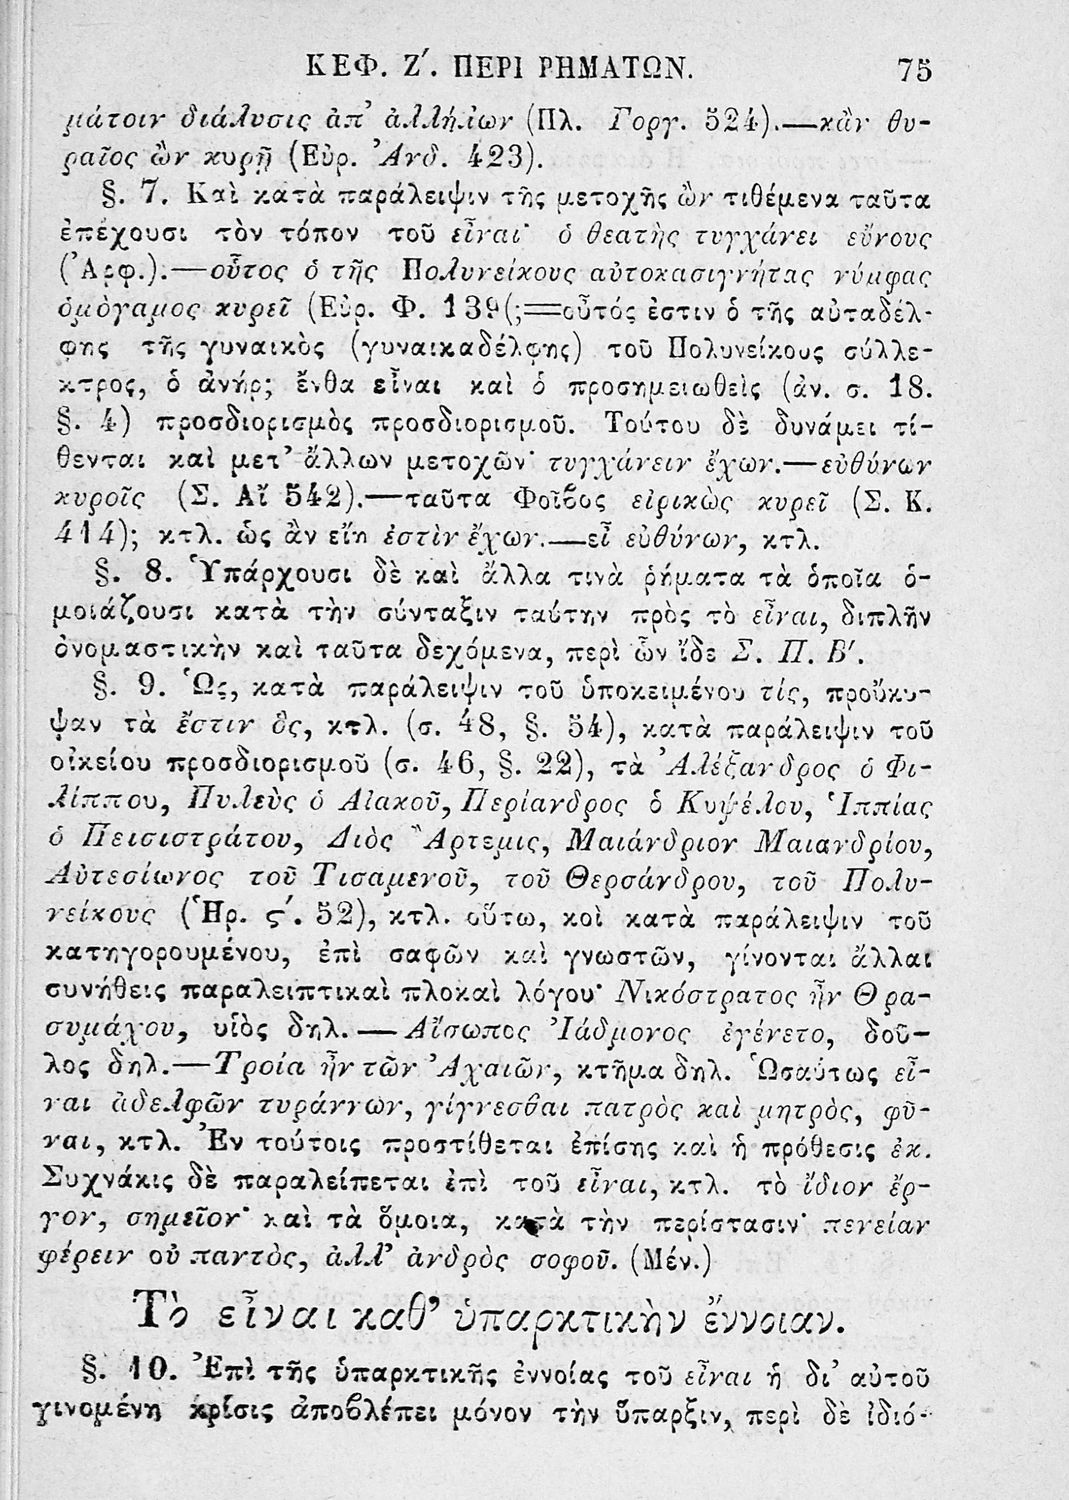 ΚΕΦ. Ζ′. ΠΕΡΙ ΡΗΜΑΤΩΝ. 75
μάτοιν διάλυσις ἀπ’ ἀλλήλων (Πλ. Γοργ. 524).—κἂν θυ-
ραῖος ὢν κυρῇ (Εὐρ. Ἀνδ. 423).
§. 7. Καὶ κατὰ παράλειψιν τῆς μετοχῆς ὢν τιθέμενα ταῦτα
ἐπέχουσι τὸν τόπον τοῦ εἶναι· ὁ θεατὴς τυγχάνει εὔνους
(Ἀρφ.).—οὗτος ὁ τῆς Πολυνείκους αὐτοκασιγνήτας νύμφας
ὁμόγαμος κυρεῖ (Εὐρ. Φ. 139(;=οὗτός ἐστιν ὁ τῆς αὐταδέλ-
φης τῆς γυναικὸς (γυναικαδέλφης) τοῦ Πολυνείκους σύλλε-
κτρος, ὁ ἀνήρ; ἔνθα εἶναι καὶ ὁ προσημειωθεὶς (ἀν. σ. 18.
§. 4) προσδιορισμὸς προσδιορισμοῦ. Τούτου δὲ δυνάμει τί-
θενται καὶ μετ’ ἄλλων μετοχῶν· τυγχάνειν ἔχων.—εὐθύνων
κυροῖς (Σ. Αἴ 542).—ταῦτα Φοῖβος εἰρικὼς κυρεῖ (Σ. Κ.
414); κτλ. ὡς ἂν εἴη ἐστὶν ἔχων.—εἶ εὐθύνων, κτλ.
§. 8. Ὑπάρχουσι δὲ καὶ ἄλλα τινὰ ῥήματα τὰ ὁποῖα ὁ-
μοιάζουσι κατὰ τὴν σύνταξιν ταύτην πρὸς τὸ εἶναι, διπλῆν
ὀνομαστικὴν καὶ ταῦτα δεχόμενα, περὶ ὧν ἴδε Σ. Π. Β′.
§. 9. Ὡς, κατὰ παράλειψιν τοῦ ὑποκειμένου τίς, προὔκυ-
ψαν τὰ ἔστιν ὃς, κτλ. (σ. 48, §. 54), κατὰ παράλειψιν τοῦ
οἰκείου προσδιορισμοῦ (σ. 46, §. 22), τὰ Ἀλέξανδρος ὁ Φι-
λίππου, Πυλεὺς ὁ Αἰακοῦ, Περίανδρος ὁ Κυψέλου, Ἱππίας
ὁ Πεισιστράτου, Διὸς Ἄρτεμις, Μαιάνδριον Μαιανδρίου,
Αὐτεσίωνος τοῦ Τισαμενοῦ, τοῦ Θερσάνδρου, τοῦ Πολυ-
νείκους (Ἡρ. ϛ′. 52), κτλ. οὕτω, κοὶ κατὰ παράλειψιν τοῦ
κατηγορουμένου, ἐπὶ σαφῶν καὶ γνωστῶν, γίνονται ἄλλαι
συνήθεις παραλειπτικαὶ πλοκαὶ λόγου· Νικόστρατος ἦν Θρα-
συμάχου, υἱὸς δηλ. — Αἴσωπος Ἰάδμονος ἐγένετο, δοῦ-
λος δηλ.—Τροία ἦν τῶν Ἀχαιῶν, κτῆμα δηλ. Ὡσαύτως εἶ-
ναι ἀδελφῶν τυράννων, γίγνεσθαι πατρὸς καὶ μητρὸς, φῦ-
ναι, κτλ. Ἐν τούτοις προστίθεται ἐπίσης καὶ ἡ πρόθεσις ἐκ.
Συχνάκις δὲ παραλείπεται ἐπὶ τοῦ εἶναι, κτλ. τὸ ἴδιον ἔρ-
γον, σημεῖον· καὶ τὰ ὅμοια, κατὰ τὴν περίστασιν· πενείαν
φέρειν οὐ παντὸς, ἀλλ’ ἀνδρὸς σοφοῦ. (Μέν.)
Τὸ εἶναι καθ’ ὑπαρκτικὴν ἔννοιαν.
§. 10. Ἐπὶ τῆς ὑπαρκτικῆς ἐννοίας τοῦ εἶναι ἡ δι’ αὐτοῦ
γινομένη κρίσις ἀποβλέπει μόνον τὴν ὕπαρξιν, περὶ δὲ ἰδιό-